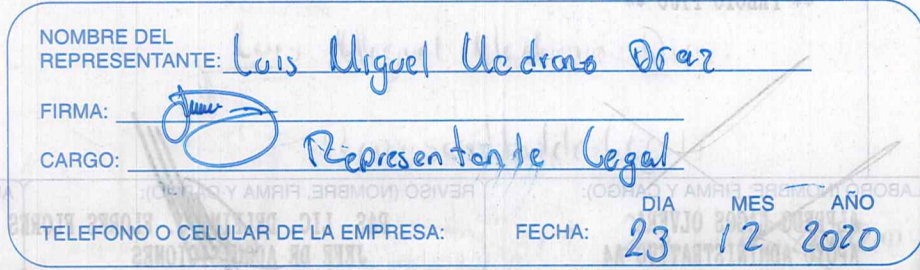 NOMBRE DEL
REPRESENTANTE: Luis Miguel Medrano Díaz
FIRMA:
CARGO: Representante Legal
DIA MES AÑO
TELEFONO O CELULAR DE LA EMPRESA: FECHA: 23 12 2020